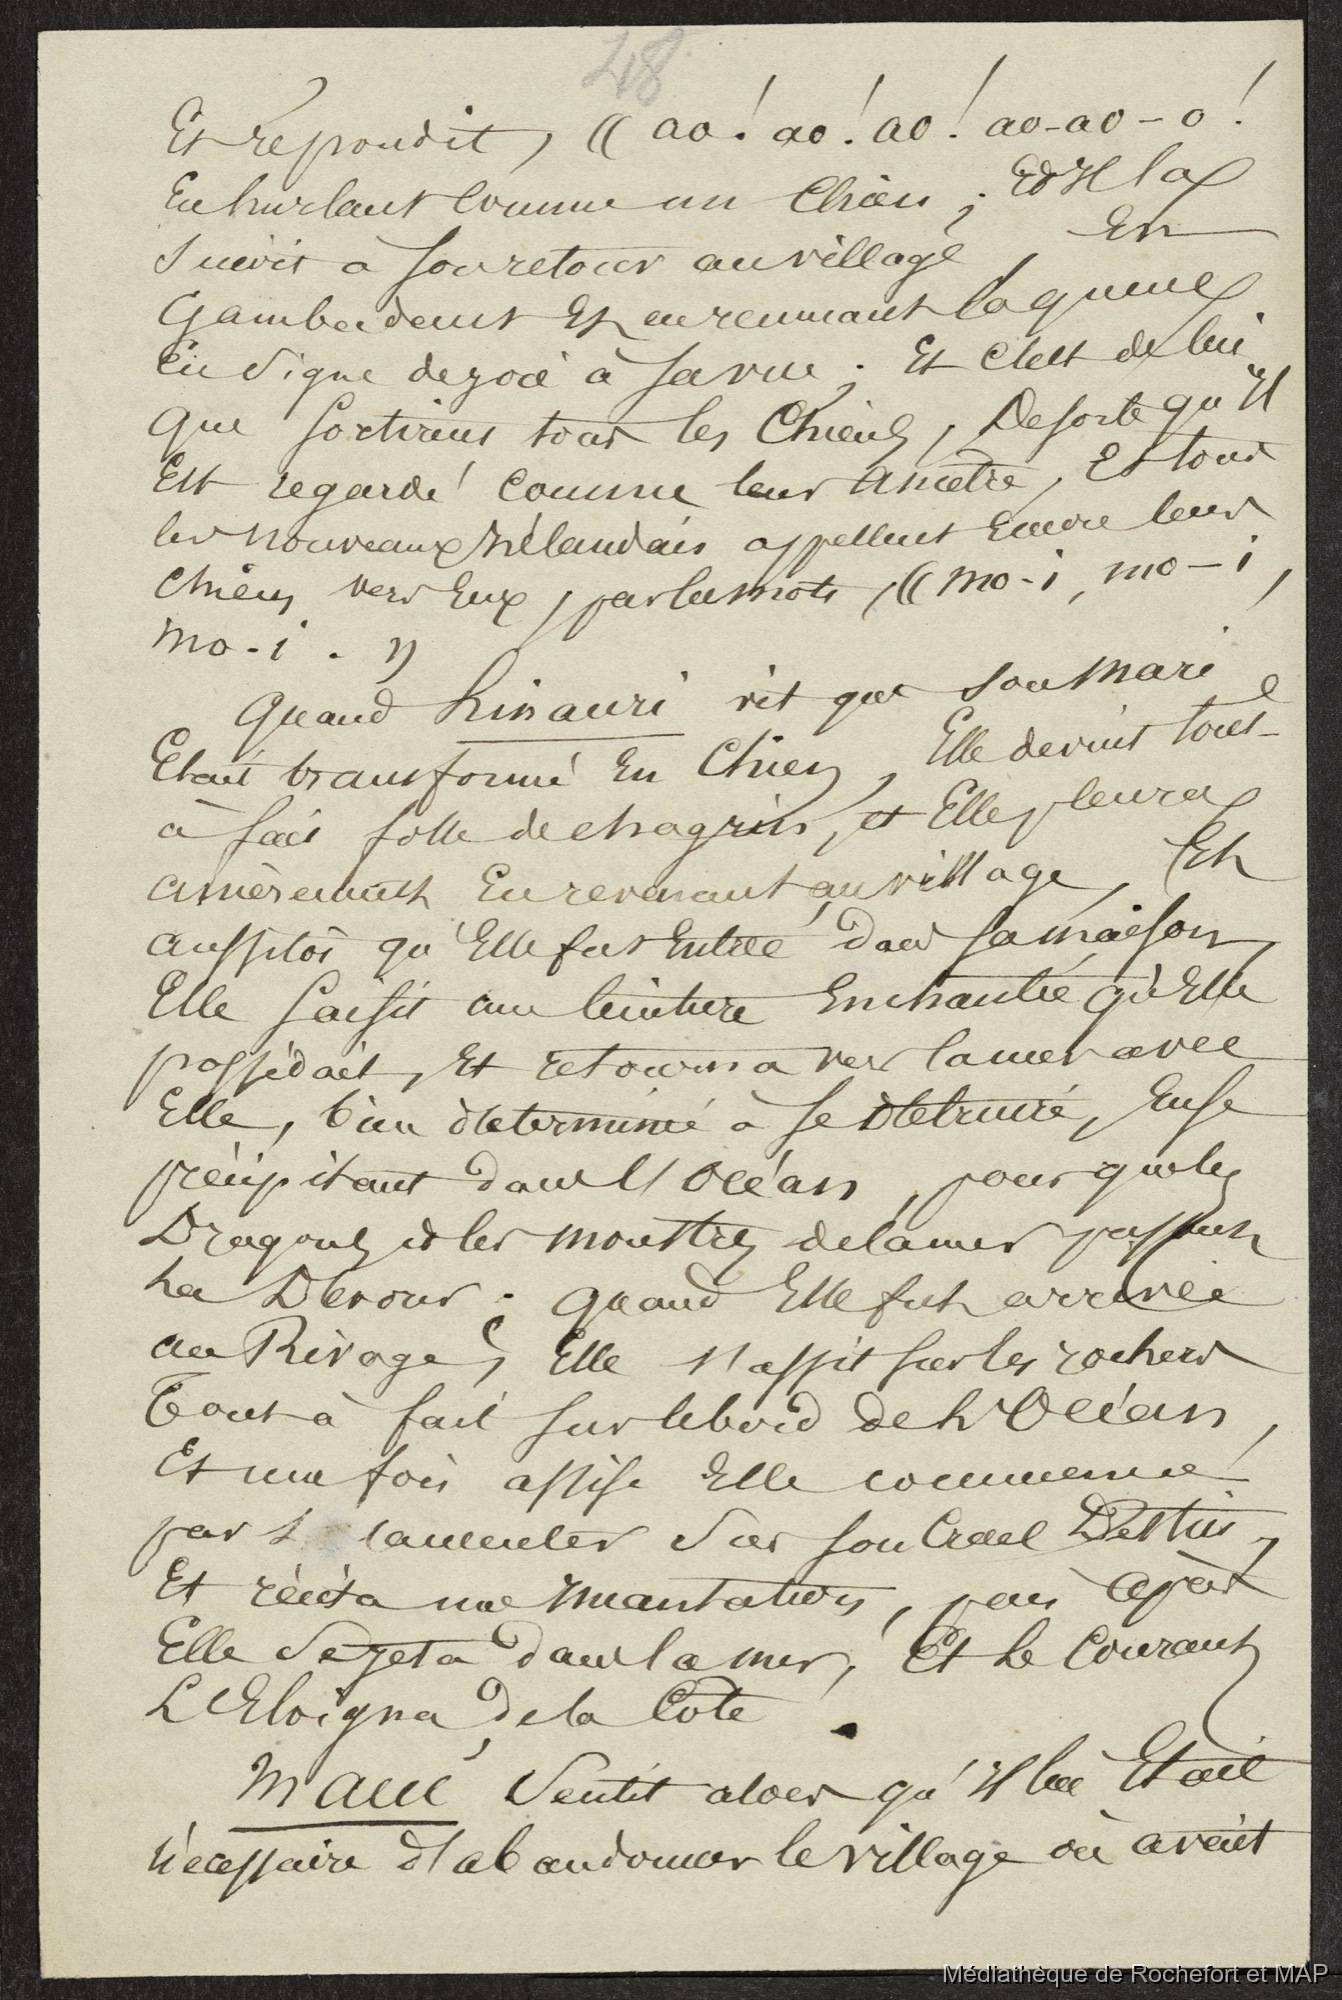 48
Et repondit, (( ao! ao! ao! ao-ao-o!
En hurlant comme un Chien ; Et Il la
suivit à son retour au village, En
Gambadant Et en remuant la queue
En signe de joie à sa vue ; Et c'est de lui
que sortirent tous les Chiens, De sorte qu'Il
Est regardé comme leur Ancêtre, Et tous
les nouveaux Zélandais appellent Encore leurs
Chiens vers Eux, par les mots, (( mo-i, mo-i,
mo-i. ))
Quand Hinauri vit que son mari
Etait transformé En Chien, Elle devint tout-
à fait folle de chagrin, et Elle pleura
amèrement En revenant au village, Et
aussitôt qu'Elle fut Entrée dans sa maison,
Elle saisit une ceinture Enchantée qu'Elle
possédait, Et retourna vers la mer avec
Elle, bien déterminée à se détruire, En se
précipitant dans l'Océan, pour que les
Dragons et les monstres de la mer pussent
La Dévorer ; quand Elle fut arrivée
au Rivage, Elle s'assit sur les rochers
Tout à fait sur le bord de L'Océan,
Et une fois assise Elle commença
par se lamenter sur son Cruel Destin,
Et récita une Incantation, puis après
Elle se jeta dans la mer, Et Le Courant
L'Eloigna de la Côte.
Maui sentit alors qu'Il lui Etait
nécessaire d'abandonner le village où avait
Médiathèque de Rochefort et MAP